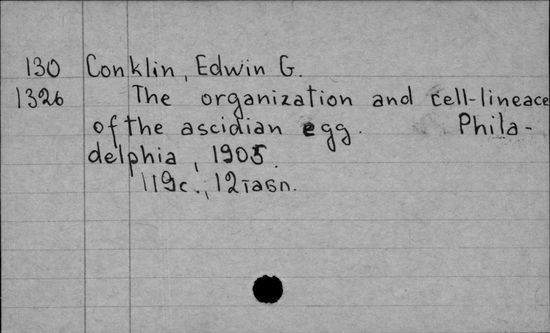 130 Conklin, Edwin G.
1326 The organization and cell-lineace
of the ascidian egg. Phila-
delphia, 1905.
119c., 12табл.